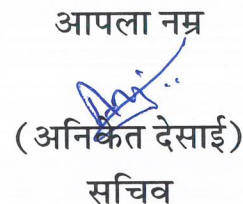 आपला नम्र
(अनिकेत देसाई)
सचिव